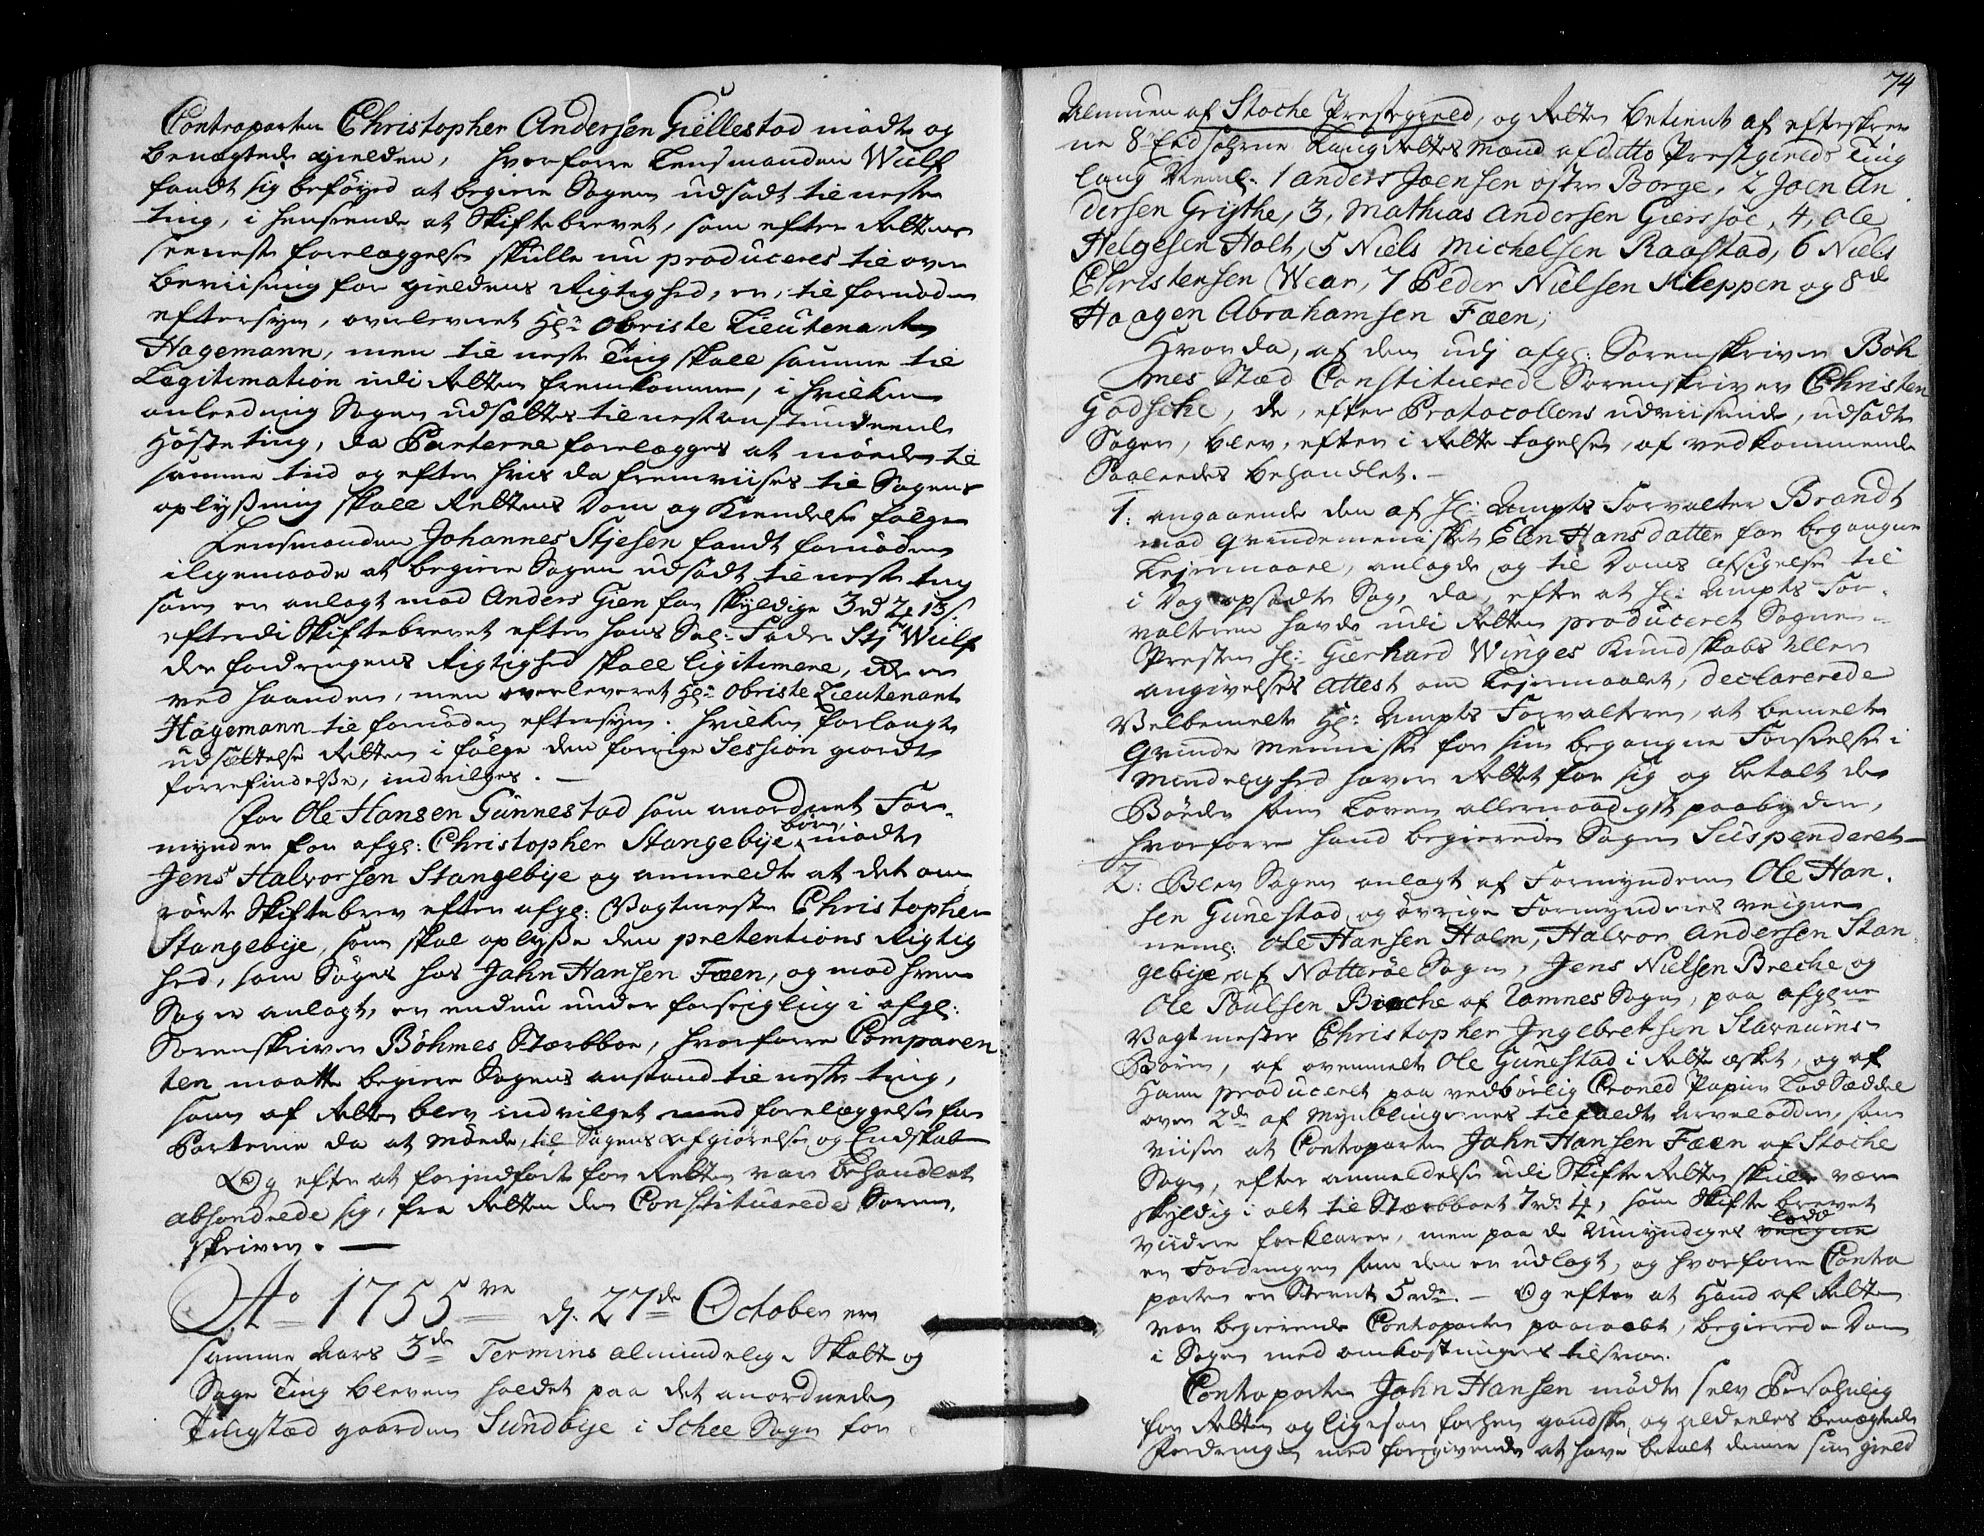 Contraparten Christopher Andersen Gjellestad mødte og
benægtede gielden, hvorforre Lensmanden Wulf
fandt sig beføyed at begiere Sagen udsadt til neste
ting, i henseende at Skiftebrevet, som efter Rettens
seeneste forelæggelse skulle nu produceres til over
beviisning for gieldens Rigtighed, er, til fornøden
eftersyn, overleveret Hr. Obriste Lieutenant
Hagemann, men til neste Ting skall samme til
Legitimation udi Retten fremkomme, i hvilken
anleedning Sagen udsættes til nestanstundende
Høsteting, da Parterne forelægges at møede til
samme tiid og efter hvis da fremviises til Sagens
oplyßning skall Rettens Dom og Kiendelse følge
Lensmanden Johannes Stiesen fandt fornøden
iligemaade at begiere Sagen udsadt til neste ting
som er anlagt mod Anders Gien for skyldige 3 rd 2 15 s.
efterdi Skiftebrevet efter hans Sal. Fader Stj Wulf
der fordringens Rigtighed skall legitimere, ikke er
ved haanden, men overleveret Hr. Obriste Lieutenant
Hagemann til fornøden eftersyn. hvilken forlangte
udsættelse Retten i følge den forrige Session giordte
forrefindelße, indvilges. —
For Ole Hansen Gunnestad som anordnet For-
mynder for afgl: Christopher Stangebye børn mødte
Jens Halvorsen Stangebye og anmeldte at det om
rørte Skiftebrev efter afgl: Vagtmester Christopher
Stangebye, som skal oplyße den pretentions Rigtig
hed, som Søges hos John Hansen Fæen, og mod hvem
Sag er anlagt, er endnu under forseigling i afgl:
Sorenskriver Bøhmes Stærboe, hvorforre Comparen
ten maatte begiere Sagens anstand til neste ting,
som af Retten blev indvilget med forelæggelse for
Parterne da at møede, til Sagens afgiørelse og Endskab
Og efter at forindførte for Retten var behandlet
absondrede sig, fra Retten den Constituerede Soren-
skriver. —
Ao 1755 d. 27de October er
samme Aars 3de Termins almindelig Skatte og
Sage Ting bleven holdet paa det anordnede
Tingstæd gaarden Sundbye i Schee Sogn for
74
Almuen af Stoche Prestegield, og Retten betient af efterskrev
ne 8te Eedsohrne Laug Rettes Mænd af ditto Prestegields Ting
laug Neml. 1 Anders Joensen østre Borge, 2 Joen An
dersen Griythe, 3, Mathias Andersen Gierssøe, 4, Ole
Helgesen Holt, 5 Niels Michelsen Raastad, 6 Niels
Christensen Wear, 7 Peder Nielsen Kleppen og 8de
Haagen Abrahamsen Fæen;
Hvor da, af den udj afgl: Sorenskriver Bøh
mes Stæd Constituerede Sorenskriver Christen
Godsche, de, efter Protocollens udviisende, udsadte
Sager, blev, efter i Rette tagelse, af vedkommende
Saaleedes behandlet. —
1: angaaende den af Hr. Ampts Forvalter Brandt
mod qvindemennisket Elen Hansdatter for begangne
Lejermaal, anlagde og til Doms afsigelse til
i Dag opsadte Sag, da, efter at Hr. Ampts For-
valteren havde udi Retten produceret Sogne-
Presten Hr. Gierhard Winges Kundskabs eller
angivelses Attest om Lejermaalet, declarerede
Velbemelte Hr: Ampts Forvalteren, at bemelte
Qvinde Menniske for sin begangne Forseelse i
Mindelighed haver Rettet for sig og betalt de
Bøeder som Loven allernaadigst paabyder,
hvorforre hand begierede Sagen Suspenderet —
2: Blev Sagen anlagt af Formynderen Ole Han-
sen Gunestad og øvrige Formynderes veigne
neml: Ole Hansen Holm, Halvor Andersen Stan-
gebye af Notterøe Sogn, Jens Nielsen Breche og
Ole Paulsen Breche af Ramnes Sogn, paa afgl:ne
Vagtmester Christopher Ingebretsen Starnums
Børn, af ovenmelte Ole Gunestad i Rette æsket, og af
Ham produceret paa vedbørlig Croned Papiir Lod Sæddel
over 2de af Myndlingernes tilfaldte Arvelodder, som
viiser at Contraparten John Hansen Fæen af Stoche
Sogn, efter anmeldelse udi Skifte Retten skulle være
skyldig i alt til Stærboet 7 rd: 4, som Skifte brevet
viidere forklarer, men paa de Umyndiges veigne lodd
er Fordringen som den er udlagt, og hvorforre Contra
parten er Stevnt 5 rdr. — Og efter at Hand af Retten
var begierende Contraparten paaraabt, begierede Dom
i Sagen med omkostningers tilsvar.
Contraparten John Hansen mødte selv Persohnlig
for Retten og ligesom forhen gandske og aldeeles benægtede
Fordringen med foregivende at have betalt denne sin gield